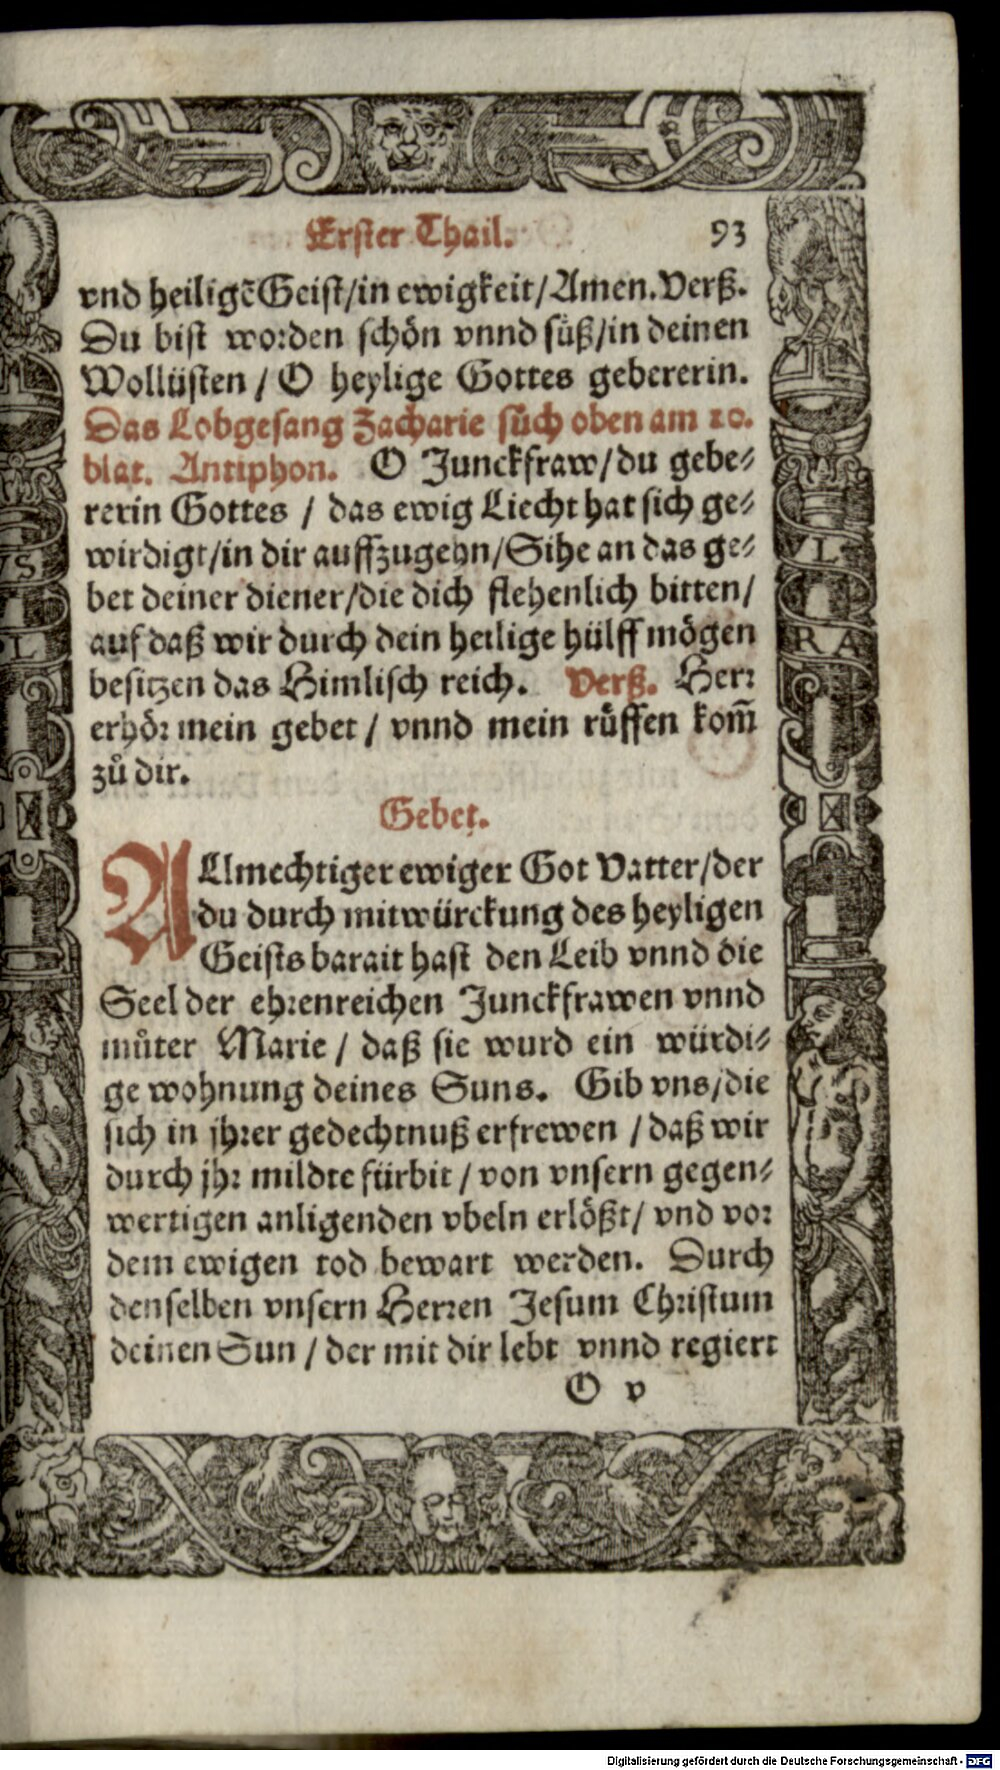 Erster Thail. 93
vnd heiligē Geist/in ewigkeit/Amen. Verß.
Du bist worden schön vnnd süß/in deinen
Wollüsten / O heylige Gottes gebererin.
Das Lobgesang Zacharie sůch oben am 20.
blat. Antiphon. O Junckfraw/du gebe⸗
rerin Gottes / das ewig Liecht hat sich ge⸗
wirdigt/in dir auffzugehn/Sihe an das ge⸗
bet deiner diener/die dich flehenlich bitten/
auf daß wir durch dein heilige hülff mögen
besitzen das Himlisch reich. Verß. Herr
erhör mein gebet / vnnd mein rüffen kom̄
zů dir.
Gebet.
ALlmechtiger ewiger Got Vatter/der
du durch mitwürckung des heyligen
Geists barait hast den Leib vnnd die
Seel der ehrenreichen Junckfrawen vnnd
můter Marie / daß sie wurd ein würdi⸗
ge wohnung deines Suns. Gib vns/die
sich in jhrer gedechtnuß erfrewen / daß wir
durch jhr mildte fürbit / von vnsern gegen⸗
wertigen anligenden vbeln erlößt/ vnd vor
dem ewigen tod bewart werden. Durch
denselben vnsern Herren Jesum Christum
deinen Sun / der mit dir lebt vnnd regiert
O v
VS
L
VL
RA
Digitalisierung gefördert durch die Deutsche Forschungsgemeinschaft - DFG